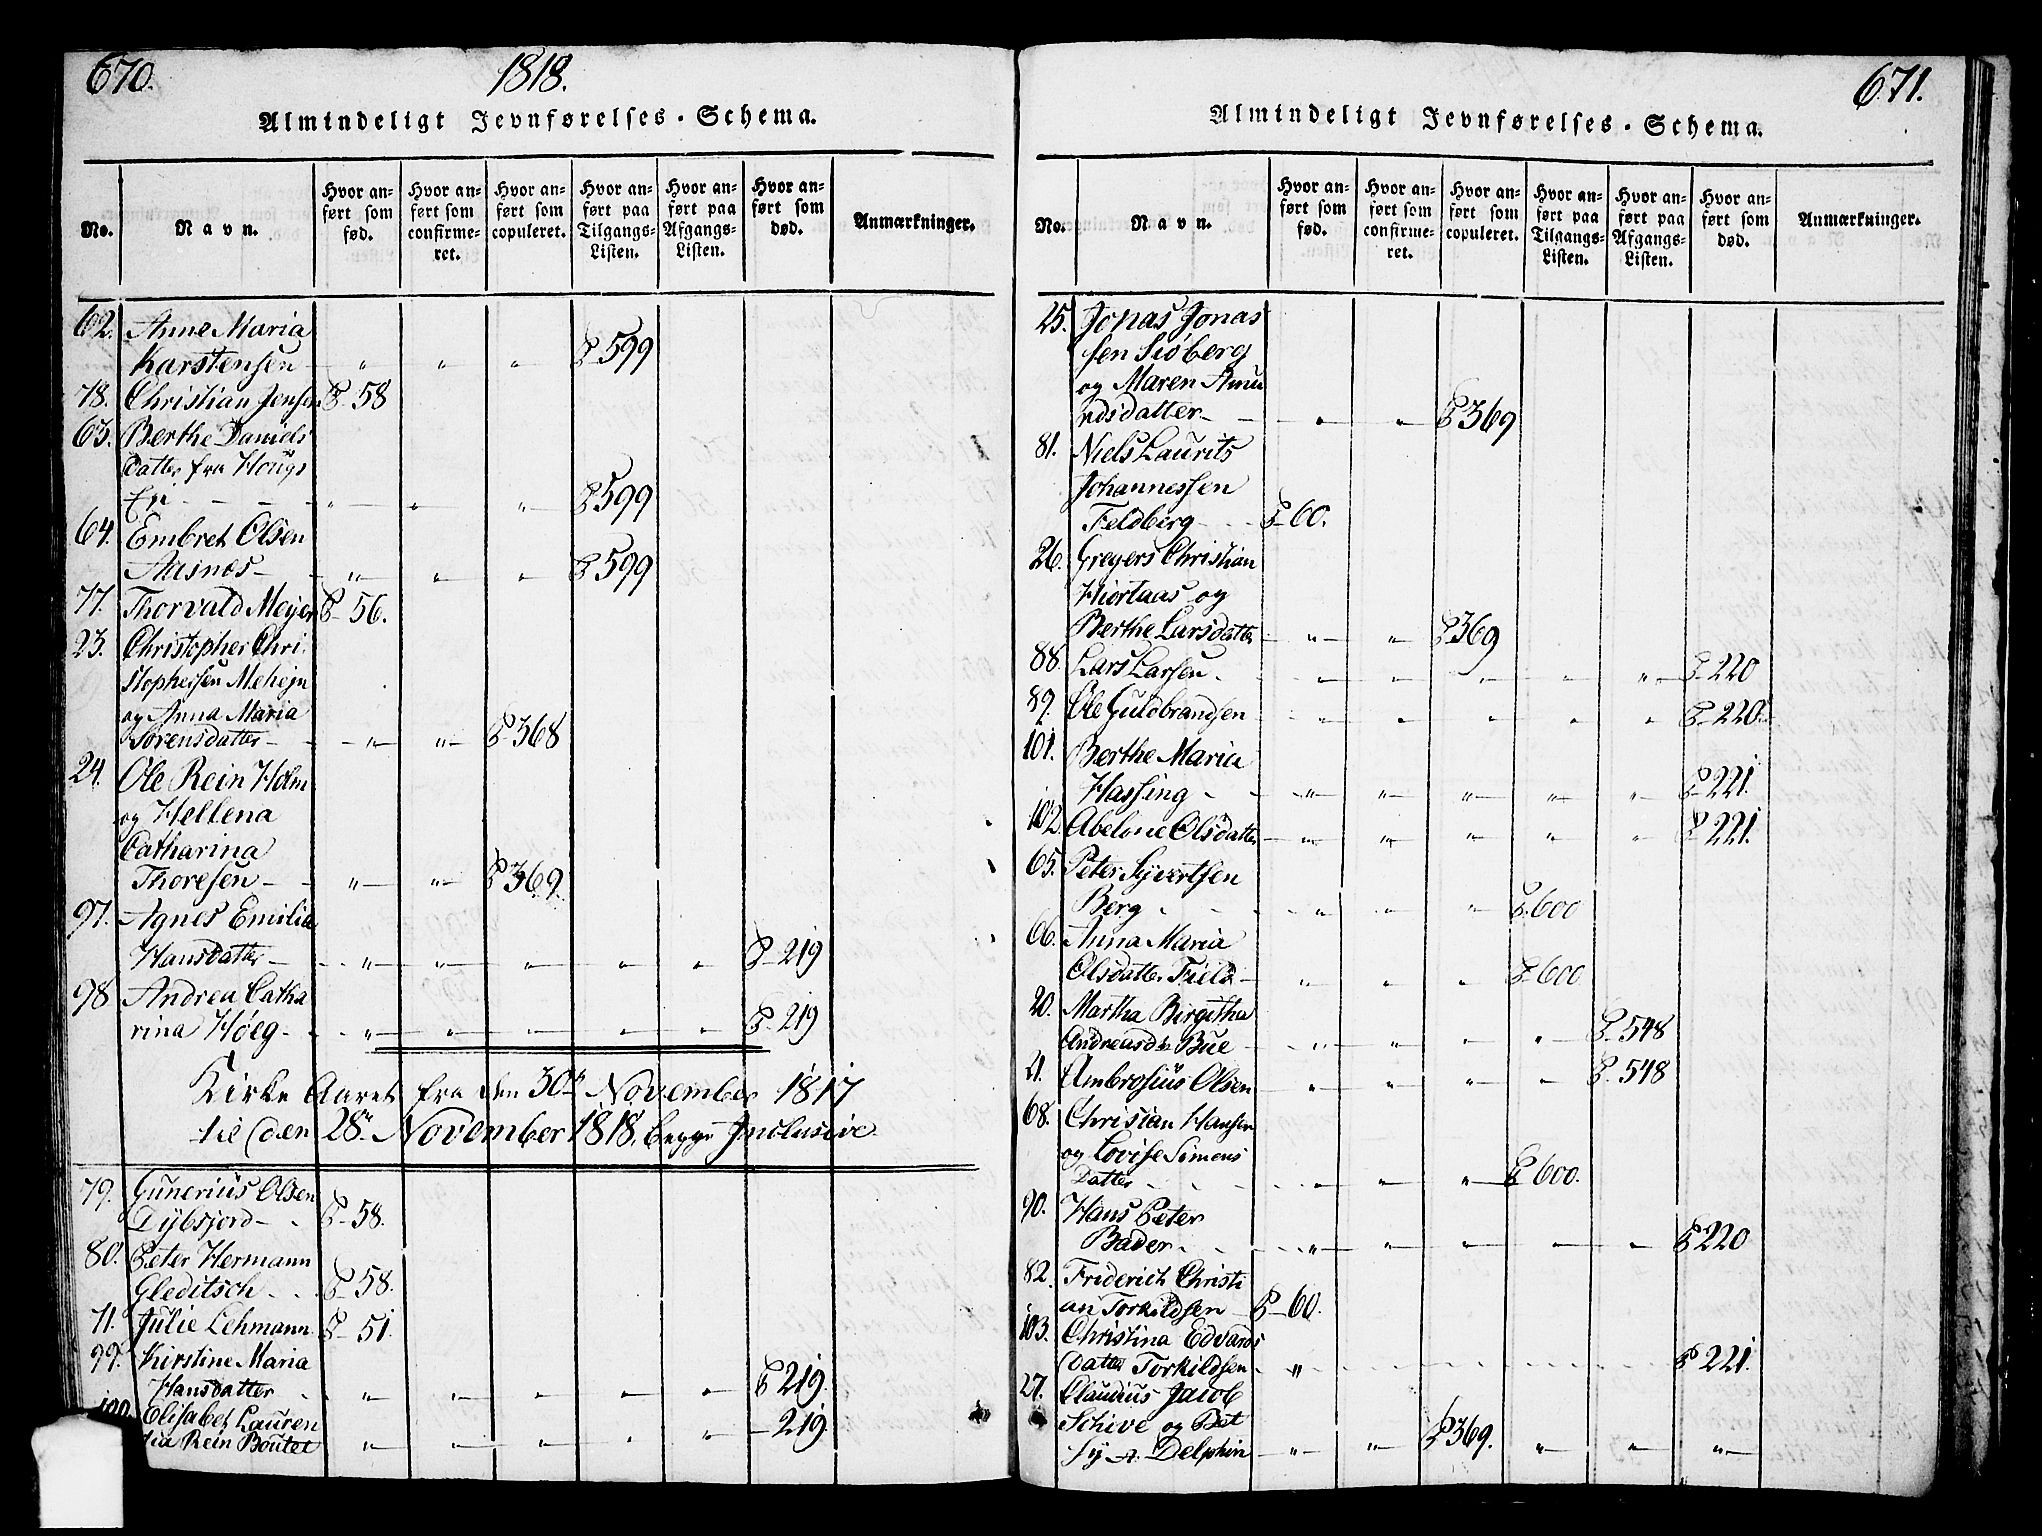 670.
1818.
Almindeligt Jevnførelses-Schema.
No.
Navn.
Hvor anført som fød.
Hvor anført som confirmeret.
Hvor anført som copuleret.
Hvor anført paa Tilgangs-Listen.
Hvor anført paa Afgangs-Listen.
Hvor anført som død.
Anmærkninger.
62. Anne Maria
Karstensen „ „ „ P 599
78. Christian Jensen P 58
63. Berthe Daniels
datter fra Hougs
„ „ „ P 599
64. Embret Olsen
Aasnes „ „ „ P 599
77. Thorvald Meyer P 56.
23. Christopher Chri
stophersen Mehejn
og Anna Maria
Sørensdatter „ „ P 368
24. Ole Rein Holm
og Hellena
Catharina
Thoresen „ „ P 369.
97. Agnes Emilia
Hansdatter „ „ „ „ „ P 219
98 Andrea Catha
rina Høeg „ „ „ „ „ P 219
Kirke Aaret fra den 30te November 1817
til den 28de November 1818, begge Inclusive.
79. Gunerius Olsen
Dybsjord P 58.
80. Peter Hermann
Gleditsch P 58.
71. Julie Lehmann P 51.
99. Kirstine Maria
Hansdatter „ „ „ „ „ P 219.
100. Elisabet Lauren
tia Rein Boutet „ „ „ „ „ 219.
671.
Almindeligt Jevnførelses-Schema.
No.
Navn.
Hvor anført som fød.
Hvor anført som confirmeret.
Hvor anført som copuleret.
Hvor anført paa Tilgangs-Listen.
Hvor anført paa Afgangs-Listen.
Hvor anført som død.
Anmærkninger.
25. Jonas Jonas
sen Siøberg
og Maren Amu
ndsdatter „ „ P 369
81. Niels Laurits
Johannessen
Feldberg P 60.
26. Greyers Christian
Hiortaas og
Berthe Larsdatter „ „ P 369
88. Lars Larsen „ „ „ „ „ P 220
89. Ole Guldbrandsen „ „ „ „ „ P 220.
101. Berthe Maria
Hassing „ „ „ „ „ P 221.
102. Abelone Olsdatter „ „ „ „ „ P 221.
65. Peter Syvertsen
Berg „ „ „ P 600
66. Anna Maria
Olsdatter Field „ „ „ P 600
20. Martha Birgitha
Andreasdtr Bue „ „ „ „ P 548
21. Ambrosius Olsen „ „ „ „ P 548
68. Christian Hansen
og Lovise Simens
Datter „ „ „ P 600.
90. Hans Peter
Bader „ „ „ „ „ P 220
82. Friderich Christi
an Torkildsen P 60.
103. Christina Edvards
datter Torkildsen „ P 221.
27. Claudius Jacob
Schive og Bet
sy A. Delphin „ „ P 369. „ „ „